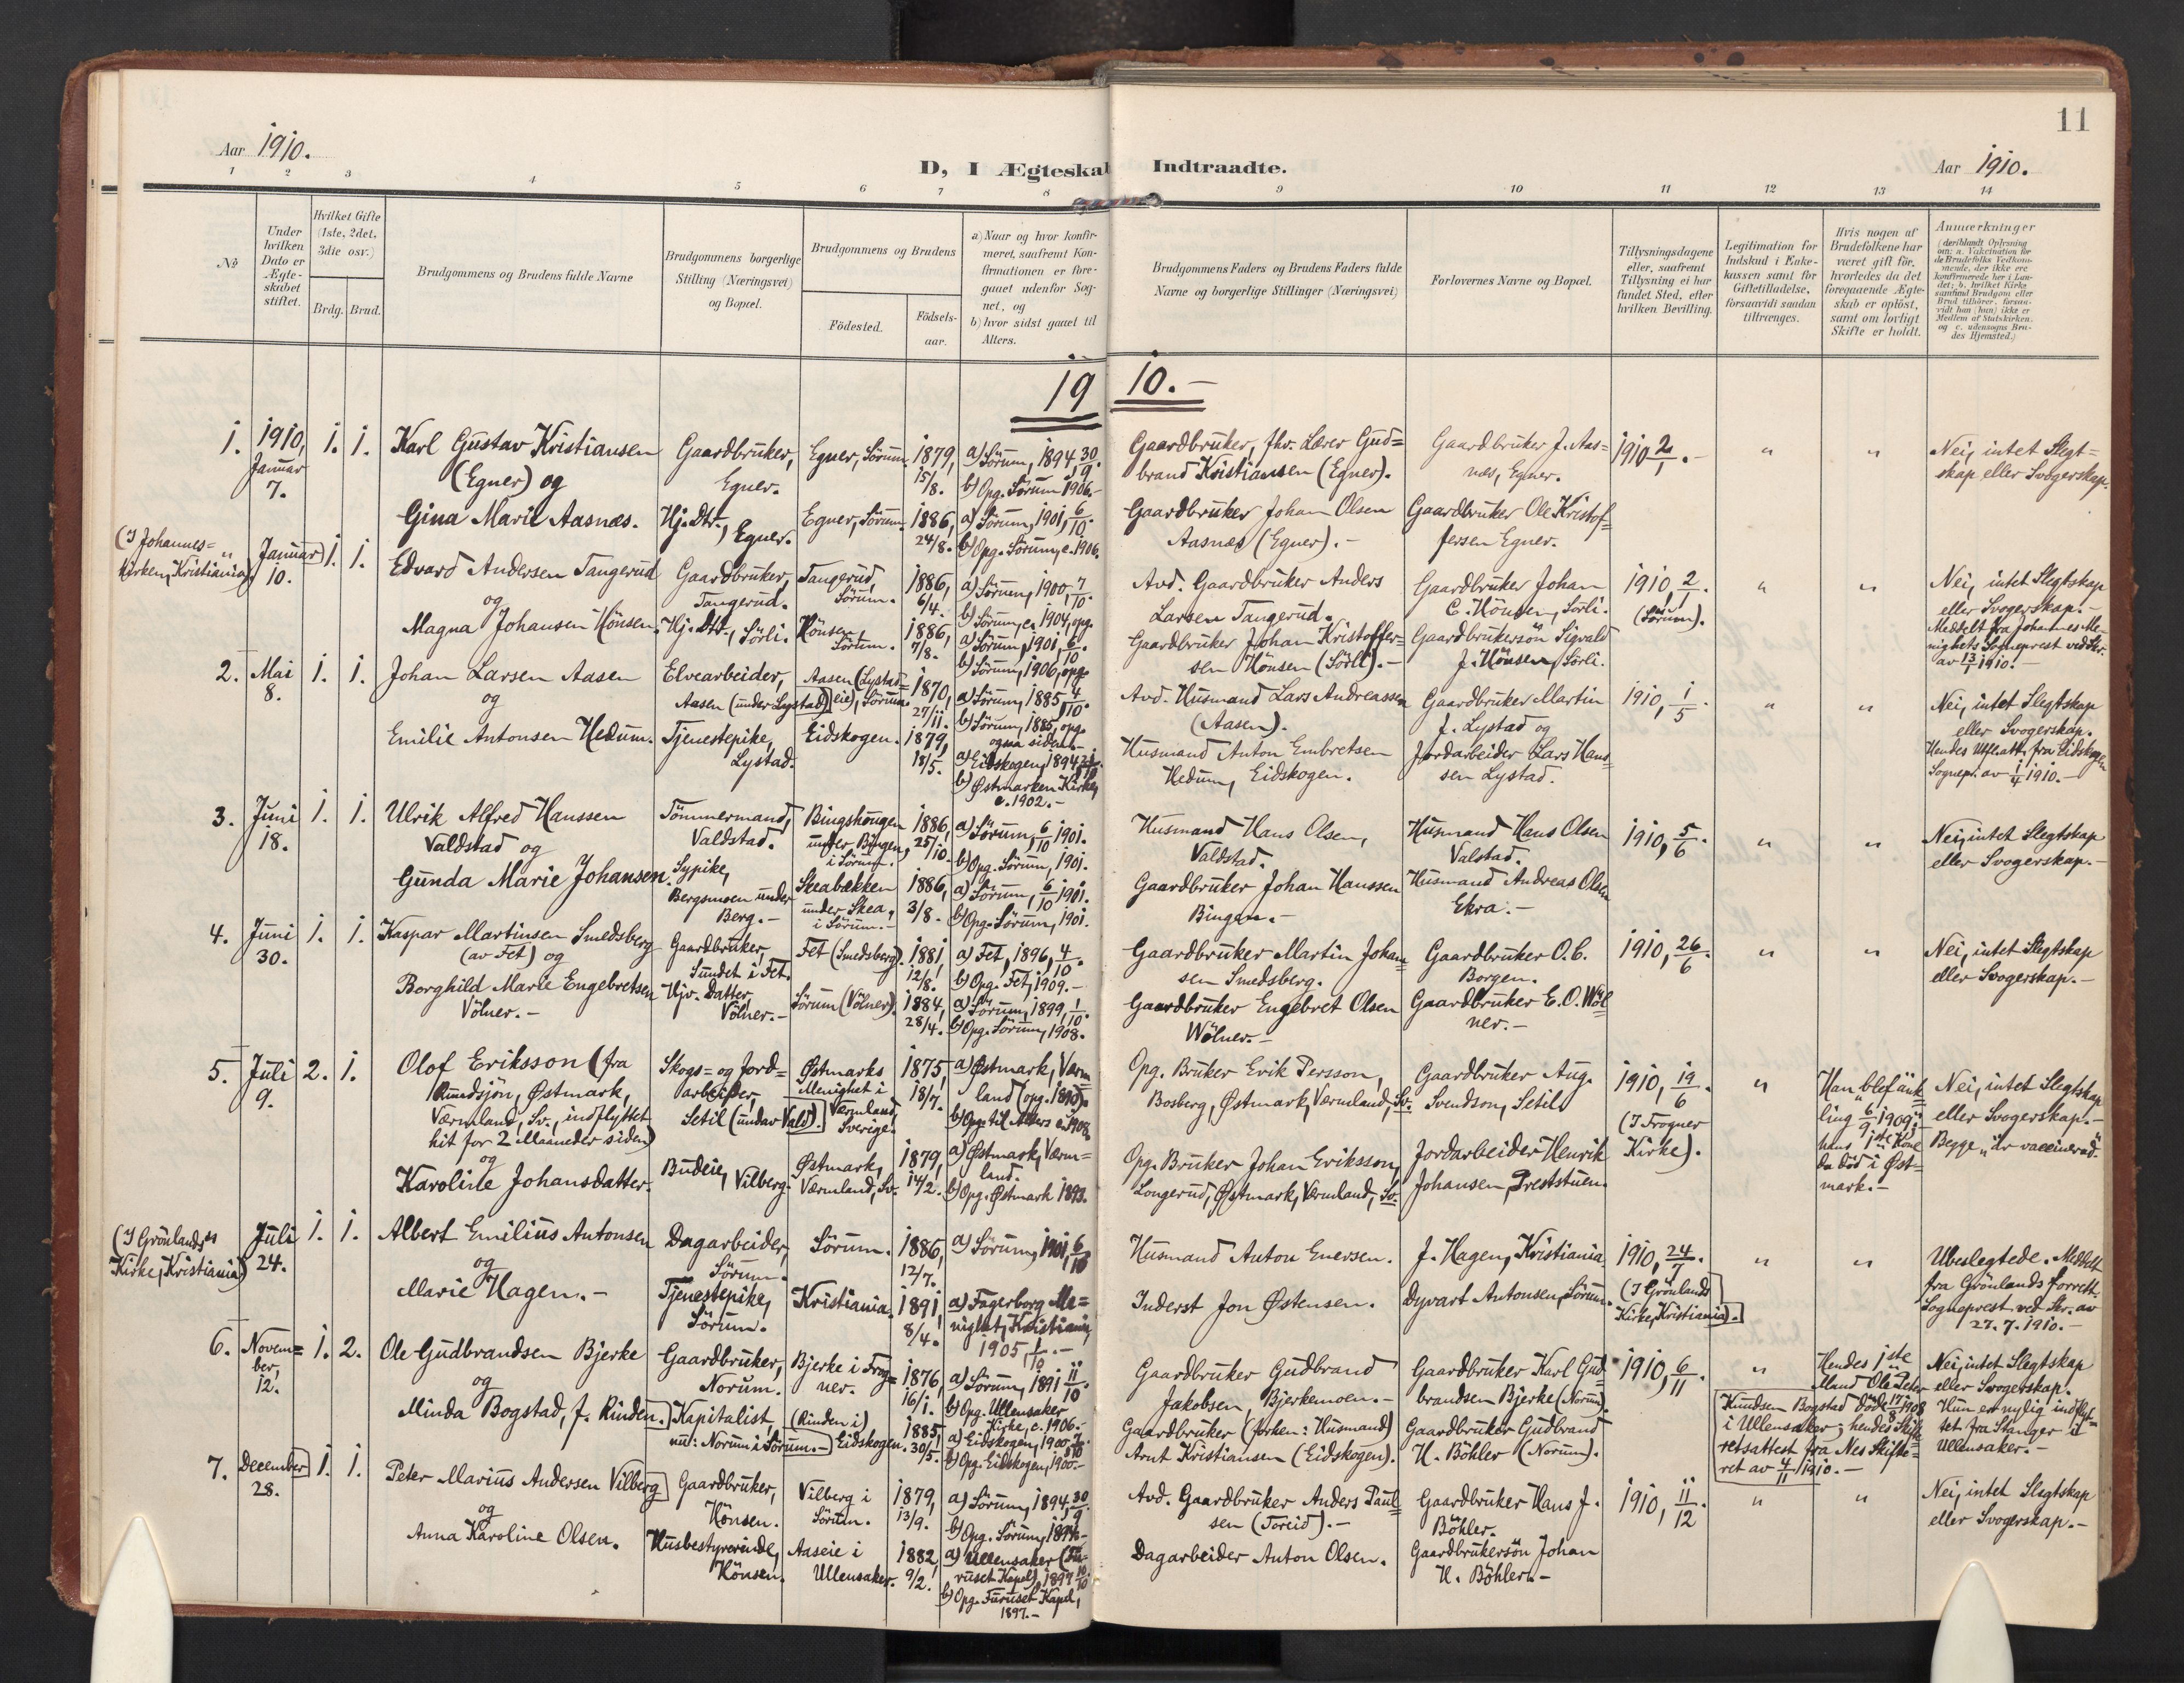 11
Aar 1910.
D, I Ægteskab Indtraadte.
Aar 1910.
1 2 3 4 5 6 7 8 9 10 11 12 13 14
№
Under hvilken Dato er Ægteskabet stiftet.
Hvilket Gifte (1ste, 2det, 3die osv.)
Brdg. Brud.
Brudgommens og Brudens fulde Navne
Brudgommens borgerlige Stilling (Næringsvei) og Bopæl.
Brudgommens og Brudens
Födested.
Födsels-aar.
a) Naar og hvor konfirmeret, saafremt Konfirmationen er foregaaet udenfor Sognet, og
b) hvor sidst gaaet til Alters.
Brudgommens Faders og Brudens Faders fulde Navne og borgerlige Stillinger (Næringsvei)
Forlovernes Navne og Bopæl.
Tillysningsdagene eller, saafremt Tillysning ei har fundet Sted, efter hvilken Bevilling.
Legitimation for Indskud i Enkekassen samt for Giftetilladelse, forsaavidt saadan tiltrænges.
Hvis nogen af Brudefolkene har været gift för, hvorledes da det foregaaende Ægteskab er oplöst, samt om lovligt Skifte er holdt.
Anmærkninger
(deriblandt Oplysning om: a. Vakcination for de Brudefolks Vedkommende, der ikke ere konfirmerede her i Landet; b. hvilket Kirkesamfund Brudgom eller Brud tilhörer, forsaavidt han (hun) ikke er Medlem af Statskirken, og c. udensogns Brudes Hjemsted.)
1910.-
1. 1910, Januar 7. 1. 1. Karl Gustav Kristiansen (Egner) og
Gaardbruker, Egner.
Egner, Sörum. 1879, 15/8.
a) Sörum, 1894, 30/9.
b) Opg. Sörum 1906.-
Gaardbruker, fhv. Lærer Gudbrand Kristiansen (Egner).
Gaardbruker J. Aasnæs, Egner.
1910 2/1.-
" "
Nei, intet Slegtskap eller Svogerskap.
Gina Marie Aasnæs.
Hj. Dtr., Egner.
Egner, Sörum. 1886, 24/8.
a) Sörum, 1901, 6/10.
b) Opg. Sörum, c. 1906.
Gaardbruker Johan Olsen Aasnæs (Egner).-
Gaardbruker Ole Kristoffersen Egner.
(I Johannes-kirken, Kristiania) " Januar 10. 1. 1. Edvard Andersen Tangerud og
Gaardbruker, Tangerud.
Tangerud, Sörum. 1886, 6/4.
a) Sörum, 1900, 7/10.
b) Sörum, c. 1904, opg.
Avd. Gaardbruker Anders Larsen Tangerud.
Gaardbruker Johan C. Hönsen, Sörli.
1910, 2/1. (Sörum).
" "
Nei, intet Slegtskap eller Svogerskap.-
Meddelt fra Johannes Menighets Sogneprest ved Skr. av 13/1 1910.-
Magna Johansen Hönsen.
Hj. Dtr., Sörli.
Hönsen, Sörum. 1886, 7/8.
a) Sörum, 1901, 6/10.
b) Sörum, 1906, opg.
Gaardbruker Johan Kristoffersen Hönsen (Sörli).-
Gaardbrukersön Sigvald J. Hönsen, Sörli.
2. Mai 8. 1. 1. Johan Larsen Aasen og
Elvearbeider, Aasen (under Lystad)
Aasen (Lystadeie), Sörum. 1870, 27/11.
a) Sörum, 1885, 4/10.
b) Sörum, 1885, opg. ogsaa siden.-
Avd. Husmand Lars Andreassen (Aasen).
Gaardbruker Martin J. Lystad og
1910, 1/5.
" "
Nei, intet Slegtskap eller Svogerskap.
Hendes Utfl.att. fra Eidskogen Sognepr. av 1/4 1910.-
Emilie Antonsen Hedum.
Tjenestepike, Lystad.
Eidskogen. 1879, 18/5.
a) Eidskogen, 1894,
b) Østmarken Kirke, c. 1902.-
Husmand Anton Embretsen Hedum, Eidskogen.
Jordarbeider Lars Hanssen Lystad.
3. Juni 18. 1. 1. Ulrik Alfred Hanssen Valdstad og
Tömmermand, Valdstad.
Bingshougen under Bingen, i Sörum. 1886, 25/10.
a) Sörum, 6/10 1901.
b) Opg. Sörum, 1901.
Husmand Hans Olsen, Valdstad.
Husmand Hans Olsen Valstad.
1910, 5/6.
" "
Nei, intet Slegtskap eller Svogerskap.-
Gunda Marie Johansen.
Sypike, Bergsmoen under Berg.-
Skeabækken under Skea, i Sörum.- 1886, 3/8.
a) Sörum, 6/10 1901.
b) Opg. Sörum, 1901.
Gaardbruker Johan Hanssen Bingen.-
Husmand Andreas Olsen Ekra.-
4. Juni 30. 1. 1. Kaspar Martinsen Smedsberg (av Fet) og
Gaardbruker, Sundet i Fet.
Fet (Smedsberg). 1881, 12/8.
a) Fet, 1896, 4/10.
b) Opg. Fet, 1909.-
Gaardbruker Martin Johansen Smedsberg.
Gaardbruker O. C. Borgen.
1910, 26/6.
" "
Nei, intet Slegtskap eller Svogerskap.-
Borghild Marie Engebretsen Völner.-
Hjv. Datter, Völner.-
Sörum (Völner). 1884, 28/4.
a) Sörum, 1899, 1/10.
b) Opg. Sörum, 1908.
Gaardbruker Engebret Olsen Wölner.-
Gaardbruker E. O. Wölner.-
5. Juli 9. 2. 1. Olof Eriksson (fra Rundsjön, Østmark, Værmland, Sv., indflyttet hit for 2 Maaneder siden) og
Skogs- og Jordarbeider, Setil (under Vald).
Østmarks Menighet i Værmland, Sverige. 1875, 18/7.
a) Østmark, Værmland (opg. 1890).
b) Opg. til Alters c. 1908.
Opg. Bruker Erik Persson, Bosberg, Østmark, Værmland, Sv.
Gaardbruker Aug. Svendson, Setil.
1910, 19/6. (I Frogner Kirke).
"
Han "blef änkling 6/9 1909"; hans 1ste Kone da död i Østmark.-
Nei, intet Slegtskap eller Svogerskap.-
Begge "är vaccinerad".
Karoline Johansdatter.
Budeie, Vilberg.
Østmark, Værmland, Sv. 1879, 14/2.
a) Østmark, Værmland.
b) Opg. Østmark 1893.
Opg. Bruker Johan Eriksson, Longerud, Østmark, Værmland, Sv.
Jordarbeider Henrik Johansen, Preststuen.
(I Grönlands Kirke, Kristiania) " Juli 24. 1. 1. Albert Emilius Antonsen og
Dagarbeider, Sörum.
Sörum. 1886, 12/7.
a) Sörum, 1901, 6/10
Husmand Anton Enersen.
J. Hagen, Kristiania
1910, 24/7. (I Grönlands Kirke, Kristiania).
" "
Ubeslegtede. Meddelt fra Grönlands forrett. Sogneprest ved Skr. av 27.7.1910.-
Marie Hagen.-
Tjenestepike, Sörum.
Kristiania. 1891, 8/4.
a) Fagerborg Menighet, Kristiania, 1905, 1/10.-
Inderst Jon Østensen.
Dyvart Antonsen, Sörum.
6. November, 12. 1. 2. Ole Gudbrandsen Bjerke og
Gaardbruker, Norum.
Bjerke i Frogner. 1876, 16/1.
a) Sörum, 1891 11/10.
b) Opg. Ullensaker Kirke, c. 1906.-
Gaardbruker Gudbrand Jakobsen, Bjerkemoen.-
Gaardbruker Karl Gudbrandsen Bjerke (Norum).
1910, 6/11.
"
Hendes 1ste Mand Ole Peter Knudsen Bogstad död 17/8 1908 i Ullensaker; hendes Skifteretsattest fra Nes Skifteret av 4/11 1910.-
Nei, intet Slegtskap eller Svogerskap. Hun er nylig indflyttet fra Stanger i Ullensaker.-
Minda Bogstad, f. Rinden.
Kapitalist, nu: Norum i Sörum.-
(Rinden i) Eidskogen. 1885, 30/5.
a) Eidskogen, 1900 7/10
b) Opg. Eidskogen, 1900.-
Gaardbruker (forhen: Husmand) Arnt Kristiansen (Eidskogen).
Gaardbruker Gudbrand H. Böhler (Norum).
7. December 28. 1. 1. Peter Marius Andersen Vilberg og
Gaardbruker, Hönsen.
Vilberg i Sörum. 1879, 13/9.
a) Sörum, 1894, 30/9
b) Opg. Sörum, 1894.-
Avd. Gaardbruker Anders Paulsen (Toreid).-
Gaardbruker Hans J. Böhler.
1910, 11/12
" "
Nei, intet Slegtskap eller Svogerskap.-
Anna Karoline Olsen.
Husbestyrerinde, Hönsen.
Aaseie i Ullensaker. 1882 9/2.
a) Ullensaker (Furuset Kapel), 1897 10/10
b) Opg. Furuset Kapel, 1897.-
Dagarbeider Anton Olsen.
Gaardbrukersön Johan H. Böhler.-